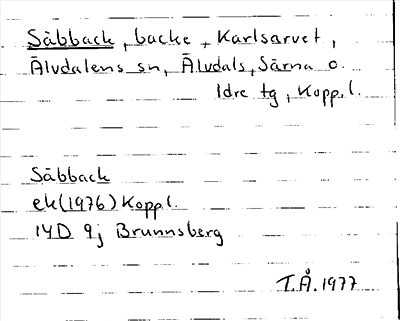 Säbback, backe, Karlsarvet,
Älvdalens sn, Älvdals, Särna o.
Idre tg, Kopp.l.
Säbback
ek(1976) Koppl.
14D 9j Brunnsberg
T.Å. 1977